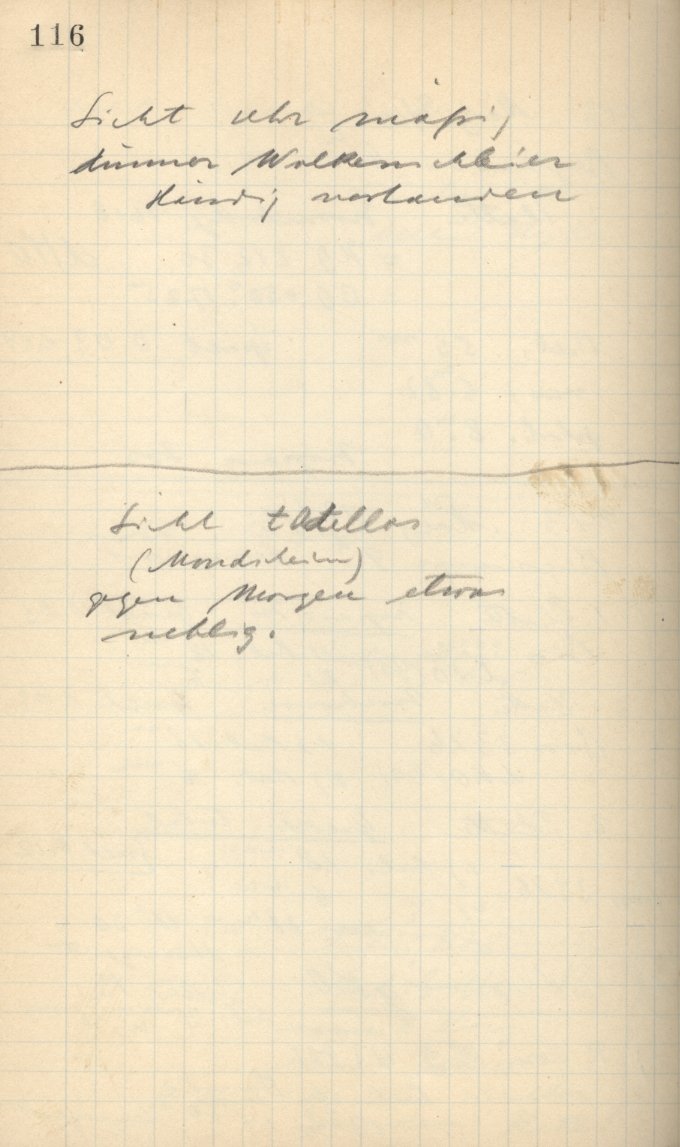 116
Sicht sehr mäßig
dünner Wolkenschleier
ständig vorhanden
Sicht tadellos
(Mondschein)
gegen Morgen etwas
neblig.